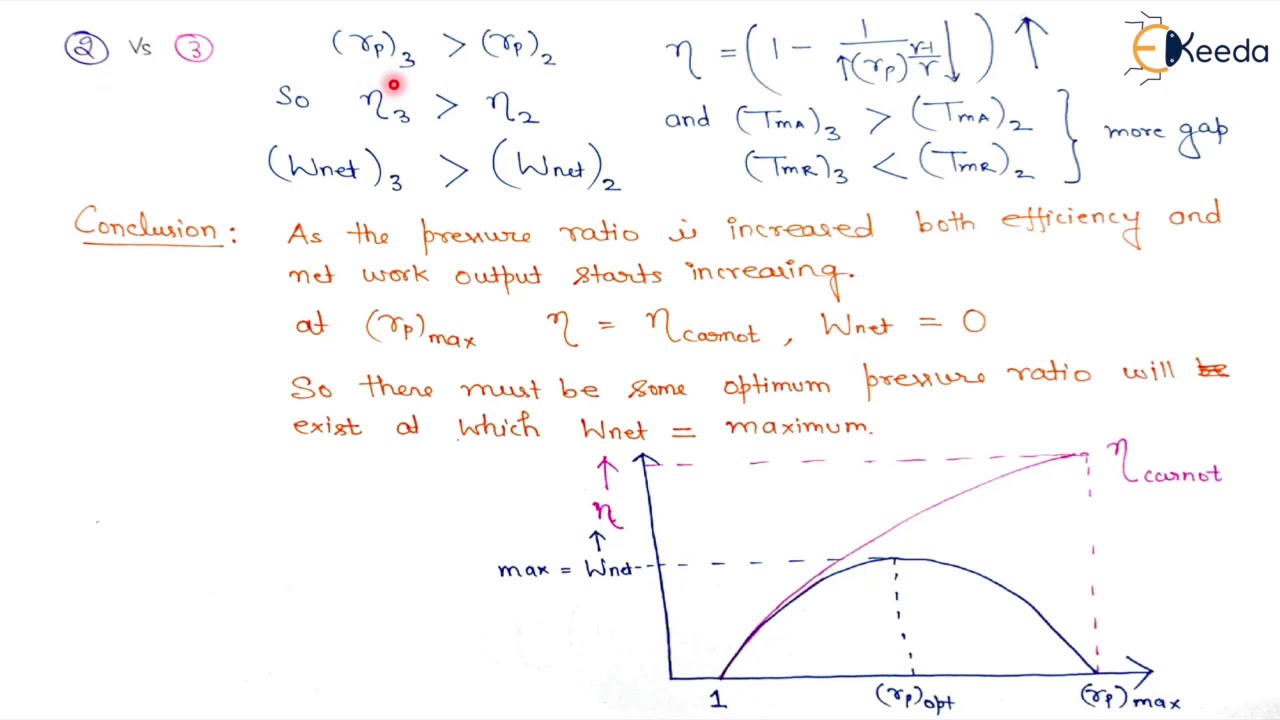 ② Vs ③ (rp)₃ > (rp)₂ η = (1 − 1/↑(rp)^(r-1/r)↓) ↑
EKeeda
So η₃ > η₂ and (TmA)₃ > (TmA)₂
(Wnet)₃ > (Wnet)₂ (TmR)₃ < (TmR)₂ } more gap
Conclusion : As the pressure ratio is increased both efficiency and
net work output starts increasing.
at (rp)max η = ηcarnot , Wnet = 0
So there must be some optimum pressure ratio will be
exist at which Wnet = maximum.
↑ η
ηcarnot
↑
max = Wnet
1 (rp)opt (rp)max